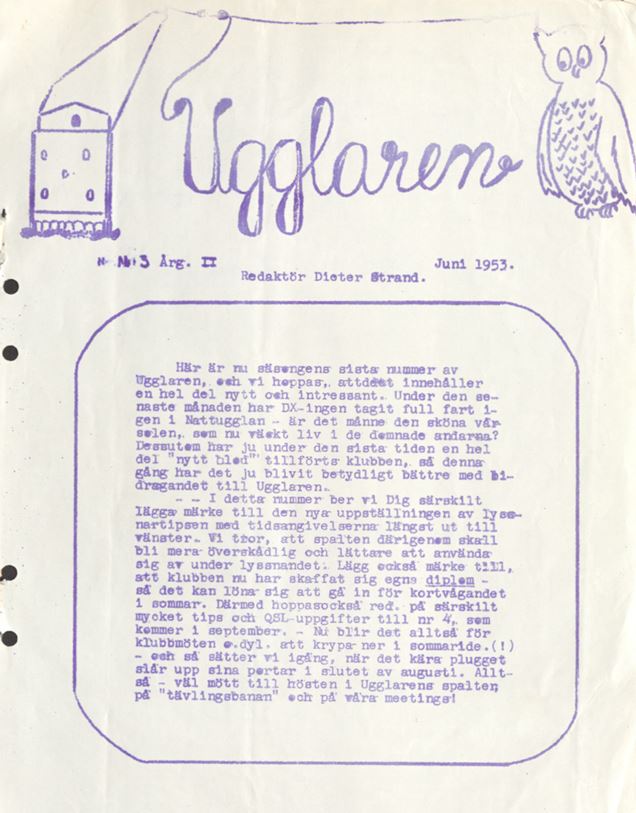 Ugglaren
No 3 Årg. II
Juni 1953.
Redaktör Dieter Strand.
Här är nu säsongens sista nummer av
Ugglaren, och vi hoppas, attdet innehåller
en hel del nytt och intressant. Under den se-
naste månaden har DX-ingen tagit full fart i-
gen i Nattugglan - är det månne den sköna vår-
solen, som nu väckt liv i de domnade andarna?
Dessutom har ju under den sista tiden en hel
del "nytt blod" tillförts klubben, så denna
gång har det ju blivit betydligt bättre med bi-
dragandet till Ugglaren.
- - I detta nummer ber vi Dig särskilt
lägga märke till den nya uppställningen av lyss-
nartipsen med tidsangivelserna längst ut till
vänster. Vi tror, att spalten därigenom skall
bli mera överskådlig och lättare att använda
sig av under lyssnandet. Lägg också märke till,
att klubben nu har skaffat sig egna diplom -
så det kan löna sig att gå in för kortvågandet
i sommar. Därmed hoppasockså red. på särskilt
mycket tips och QSL-uppgifter till nr 4, som
kommer i september. - Nu blir det alltså för
klubbmöten o.dyl. att krypa ner i sommaride.(!)
- och så sätter vi igång, när det kära plugget
slår upp sina portar i slutet av augusti. Allt-
så - väl mött till hösten i Ugglarens spalter,
på "tävlingsbanan" och på våra meetings!